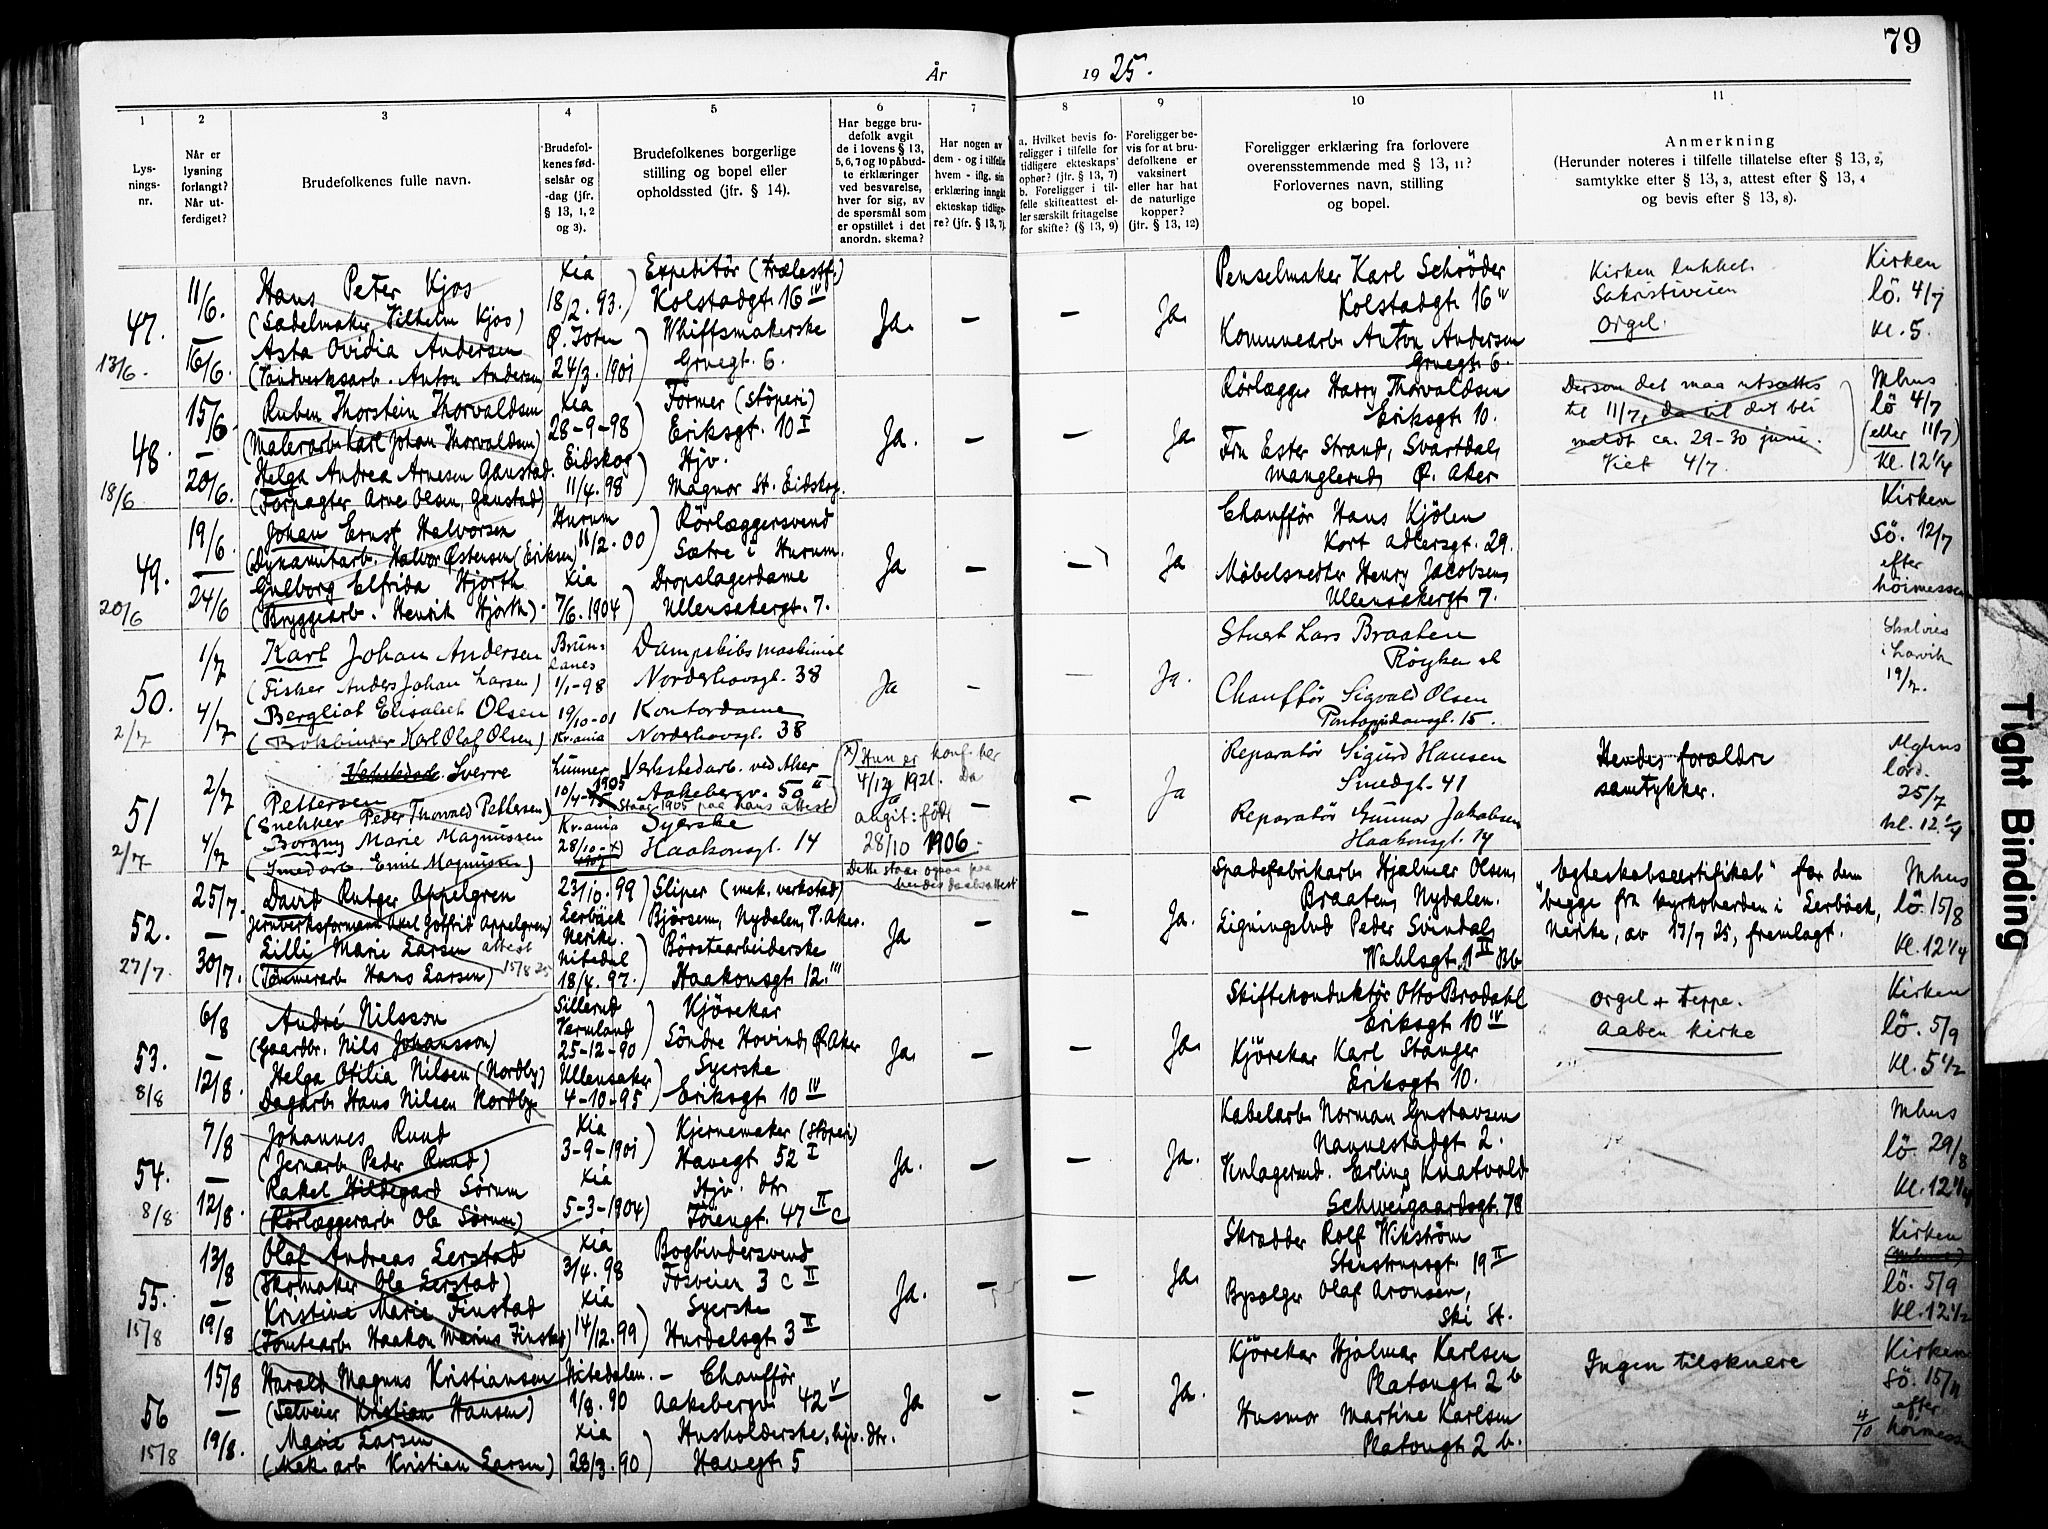 79
År 1925.
1
2
3
4
5
6
7
8
9
10
11
Lys-
nings-
nr.
Når er
lysning
forlangt?
Når ut-
ferdiget?
Brudefolkenes fulle navn.
Brudefol-
kenes fød-
selsår og
-dag (jfr.
§ 13, 1, 2
og 3).
Brudefolkenes borgerlige
stilling og bopel eller
opholdssted (jfr. § 14).
Har begge bru-
defolk avgit
de i lovens § 13,
5, 6, 7 og 10 påbud-
te erklæringer
ved besvarelse,
hver for sig, av
de spørsmål som
er opstillet i det
anordn. skema?
Har nogen av
dem - og i tilfelle
hvem - iflg. sin
erklæring inngåt
ekteskap tidlige-
re? (jfr. § 13, 7).
a. Hvilket bevis fo-
religger i tilfelle for
tidligere ekteskaps
ophør? (jfr. § 13, 7)
b. Foreligger i til-
felle skifteattest el-
ler særskilt fritagelse
for skifte? (§ 13, 9)
Foreligger be-
vis for at bru-
defolkene er
vaksinert
eller har hat
de naturlige
kopper?
(jfr. § 13, 12)
Foreligger erklæring fra forlovere
overensstemmende med § 13, 11?
Forlovernes navn, stilling
og bopel.
Anmerkning
(Herunder noteres i tilfelle tillatelse efter § 13, 2,
samtykke efter § 13, 3, attest efter § 13, 4
og bevis efter § 13, 8).
47.
13/6.
11/6.
16/6.
Hans Peter Kjos
(Sadelmaker Vilhelm Kjos)
Asta Ovidia Andersen
(Tandverksarb. Anton Andersen)
Kia
18/2. 93.
Ø. Toten
24/3. 1901
Expeditör (Trælastf.)
Kolstadgt. 16 IV
Whiftsmakerske
Gruegt. 6.
Ja. – – Ja.
Penselmaker Karl Schröder
Kolstadgt. 16 IV
Kommunearb. Anton Andersen
Gruegt. 6.
Kirken lukket
Sakristiveien
Orgel.
Kirken
lö. 4/7
kl. 5.
48.
18/6
15/6.
20/6.
Ruben Thorstein Thorvaldsen
(Malerarb. Karl Johan Thorvaldsen)
Helga Andrea Arnesen Ganstad.
(Forpagter Arne Olsen Ganstad)
Kia
28-9-98
Eidskog
11/4. 98
Former (Stöperi)
Eriksgt. 10 I
Hjv.
Magnor St. Eidskog.
Ja. – – Ja.
Rörlægger Harry Thorvaldsen
Eriksgt. 10.
Fru Ester Strand, Svartdal,
Manglerud, Ø. Aker
Dersom det maa utsættes
til 11/7, da vil det bli
meldt ca. 29-30 juni.
Viet 4/7.
Mhus
lö 4/7
(eller 11/7)
kl. 12 1/4
49.
20/6
19/6.
24/6
Johan Ernst Halvorsen
(Dynamitarb. Halvor Østensen (Eriksen)
Gulborg Elfrida Hjorth
(Bryggearb. Henrik Hjorth).
Hurum
11/2. 00
Kia
7/6. 1904
Rörlæggersvend
Sætre i Hurum.
Dropslagerdame
Ullensakergt. 7.
Ja – – Ja
Chaufför Hans Kjölen
Kort Adlersgt. 29.
Møbelsnedker Henry Jacobsen,
Ullensakergt 7.
Kirken
Sö. 12/7
efter
höimessen
50.
2/7
1/7
4/7
Karl Johan Andersen
(Fisker Anders Johan Larsen)
Bergliot Elisabet Olsen
(Bokbinder Karl Olaf Olsen)
Brun-
lanes
1/1-98
19/10-01
Kr.ania
Dampskibsmaskinist
Norderhovsgt. 38
Kontordame
Norderhovsgt. 38
Ja – – Ja.
Stuert Lars Braaten
Röyken st
Chauffør Sigvald Olsen
Pontoppidansgt. 15.
Skal vies
i Larvik
19/7.
51
2/7
2/7
4/7
Verkstedarb. Sverre
Pettersen
(Snekker Peder Thorvald Pettersen)
Borgny Marie Magnussen
(Smedarb. Emil Magnussen)
Lunner
10/4-1905
Kr.ania
28/10-x)
1907
Verkstedarb. ved Aker
Aakebergv. 50 II
Staar 1905 paa hans attest
Syerske
Haakonsgt. 14
x) Hun er konf. her
4/12 1921. Da
Ja
angit: født
28/10 1906.
Dette staar ogsaa paa
hendes daabsattest
– Ja
Reparatør Sigurd Hansen
Smedgt. 41
Reparatør Gunnar Jakobsen
Haakonsgt. 14
Hendes forældre
samtykker.
Mghus
lörd.
25/7
kl. 12 1/4
52.
27/7.
25/7.
30/7.
David Rutger Appelgren
Jernverksformann Axel Gotfrid Appelgren)
Lilli Marie Larsen attest
15/8 25
(Tømmerarb. Hans Larsen)
23/10. 99
Lerbäck
Nerike.
Nitedal
18/4. 97.
Sliper (mek. verkstad)
Bjørsem, Nydalen, V. Aker.
Börstearbeiderske
Haakonsgt 12. III
Ja – – Ja.
Spadefabrikarb. Hjalmar Olsen,
Braaten, Nydalen.
Ligningsbud Peder Svindal,
Wahlsgt. 1 II Bb
"Egteskabscertifikat" for dem
begge fra Kyrkoherden i Lerbäck,
Nerike, av 17/7 25, fremlagt.
Mhus
lö. 15/8
kl. 12 1/4
53.
8/8
6/8
12/8.
André Nilsson
(Gaardbr. Nils Johansson)
Helga Otilia Nilsen (Nordby)
Dagarb. Hans Nilsen Nordby
Sillerud
Vermland
25-12-90
Ullensaker
4-10-95
Kjörekar
Söndre Hovind, Ø. Aker
Syerske
Eriksgt. 10 IV
Ja. – – Ja.
Skiftekonduktör Otto Brodahl
Eriksgt 10 IV
Kjörekar Karl Stanger
Eriksgt. 10.
orgel + Teppe.
Aaben kirke
Kirken
lö. 5/9
kl. 5 1/2
54.
8/8
7/8
12/8.
Johannes Ruud
(Jernarb. Peder Ruud)
Rakel Hildegard Sörum
(Rörlæggerarb. Ole Sörum)
Kia
3-9-1901
Kia
5-3-1904
Kjernemaker (Stöperi)
Havegt 52 I
Hjv. dtr
Töiengt. 47 II c
Ja. – – Ja.
Kabelarb. Norman Gustavsen
Nannestadgt 2.
Erling Knatvold
Schweigaardsgt. 78
Mhus
lö. 29/8
kl. 12 1/4
55.
15/8
13/8
19/8
Olaf Andreas Lerstad
(Skomaker Ole Lerstad)
Kristine Marie Finstad
(Tomtearb. Haakon Marius Finstad)
Kia
3/4. 98
Kia
14/12. 99
Bogbindersvend
Fosveien 3 c II
Syerske
Hurdalsgt. 3 II
Ja. – – Ja.
Skrædder Rolf Wikström
Stenstrupsgt. 19 II
Bysælger Olaf Aronsen,
Ski St.
Kirken
(Mhuset)
lö. 5/9
kl. 12 1/2
56
15/8
15/8
19/8.
Harald Magnus Kristiansen
(Satveier Kristian Hansen)
Marie Larsen
(Mek. arb Kristian Larsen)
Nitedalen.
1/3. 90
Kia
28/3. 90
Chauffør
Aakebergv. 42 V
Husholderske, hjv. dtr.
Havegt 5
Ja – – Ja.
Kjörekar Hjalmar Karlsen
Platougt 2 b
Husmor Martine Karlsen
Platougt 2 b.
Ingen tilskuere
Kirken
Sö. 15/11
efter
4/10 höimessen
Tight Binding